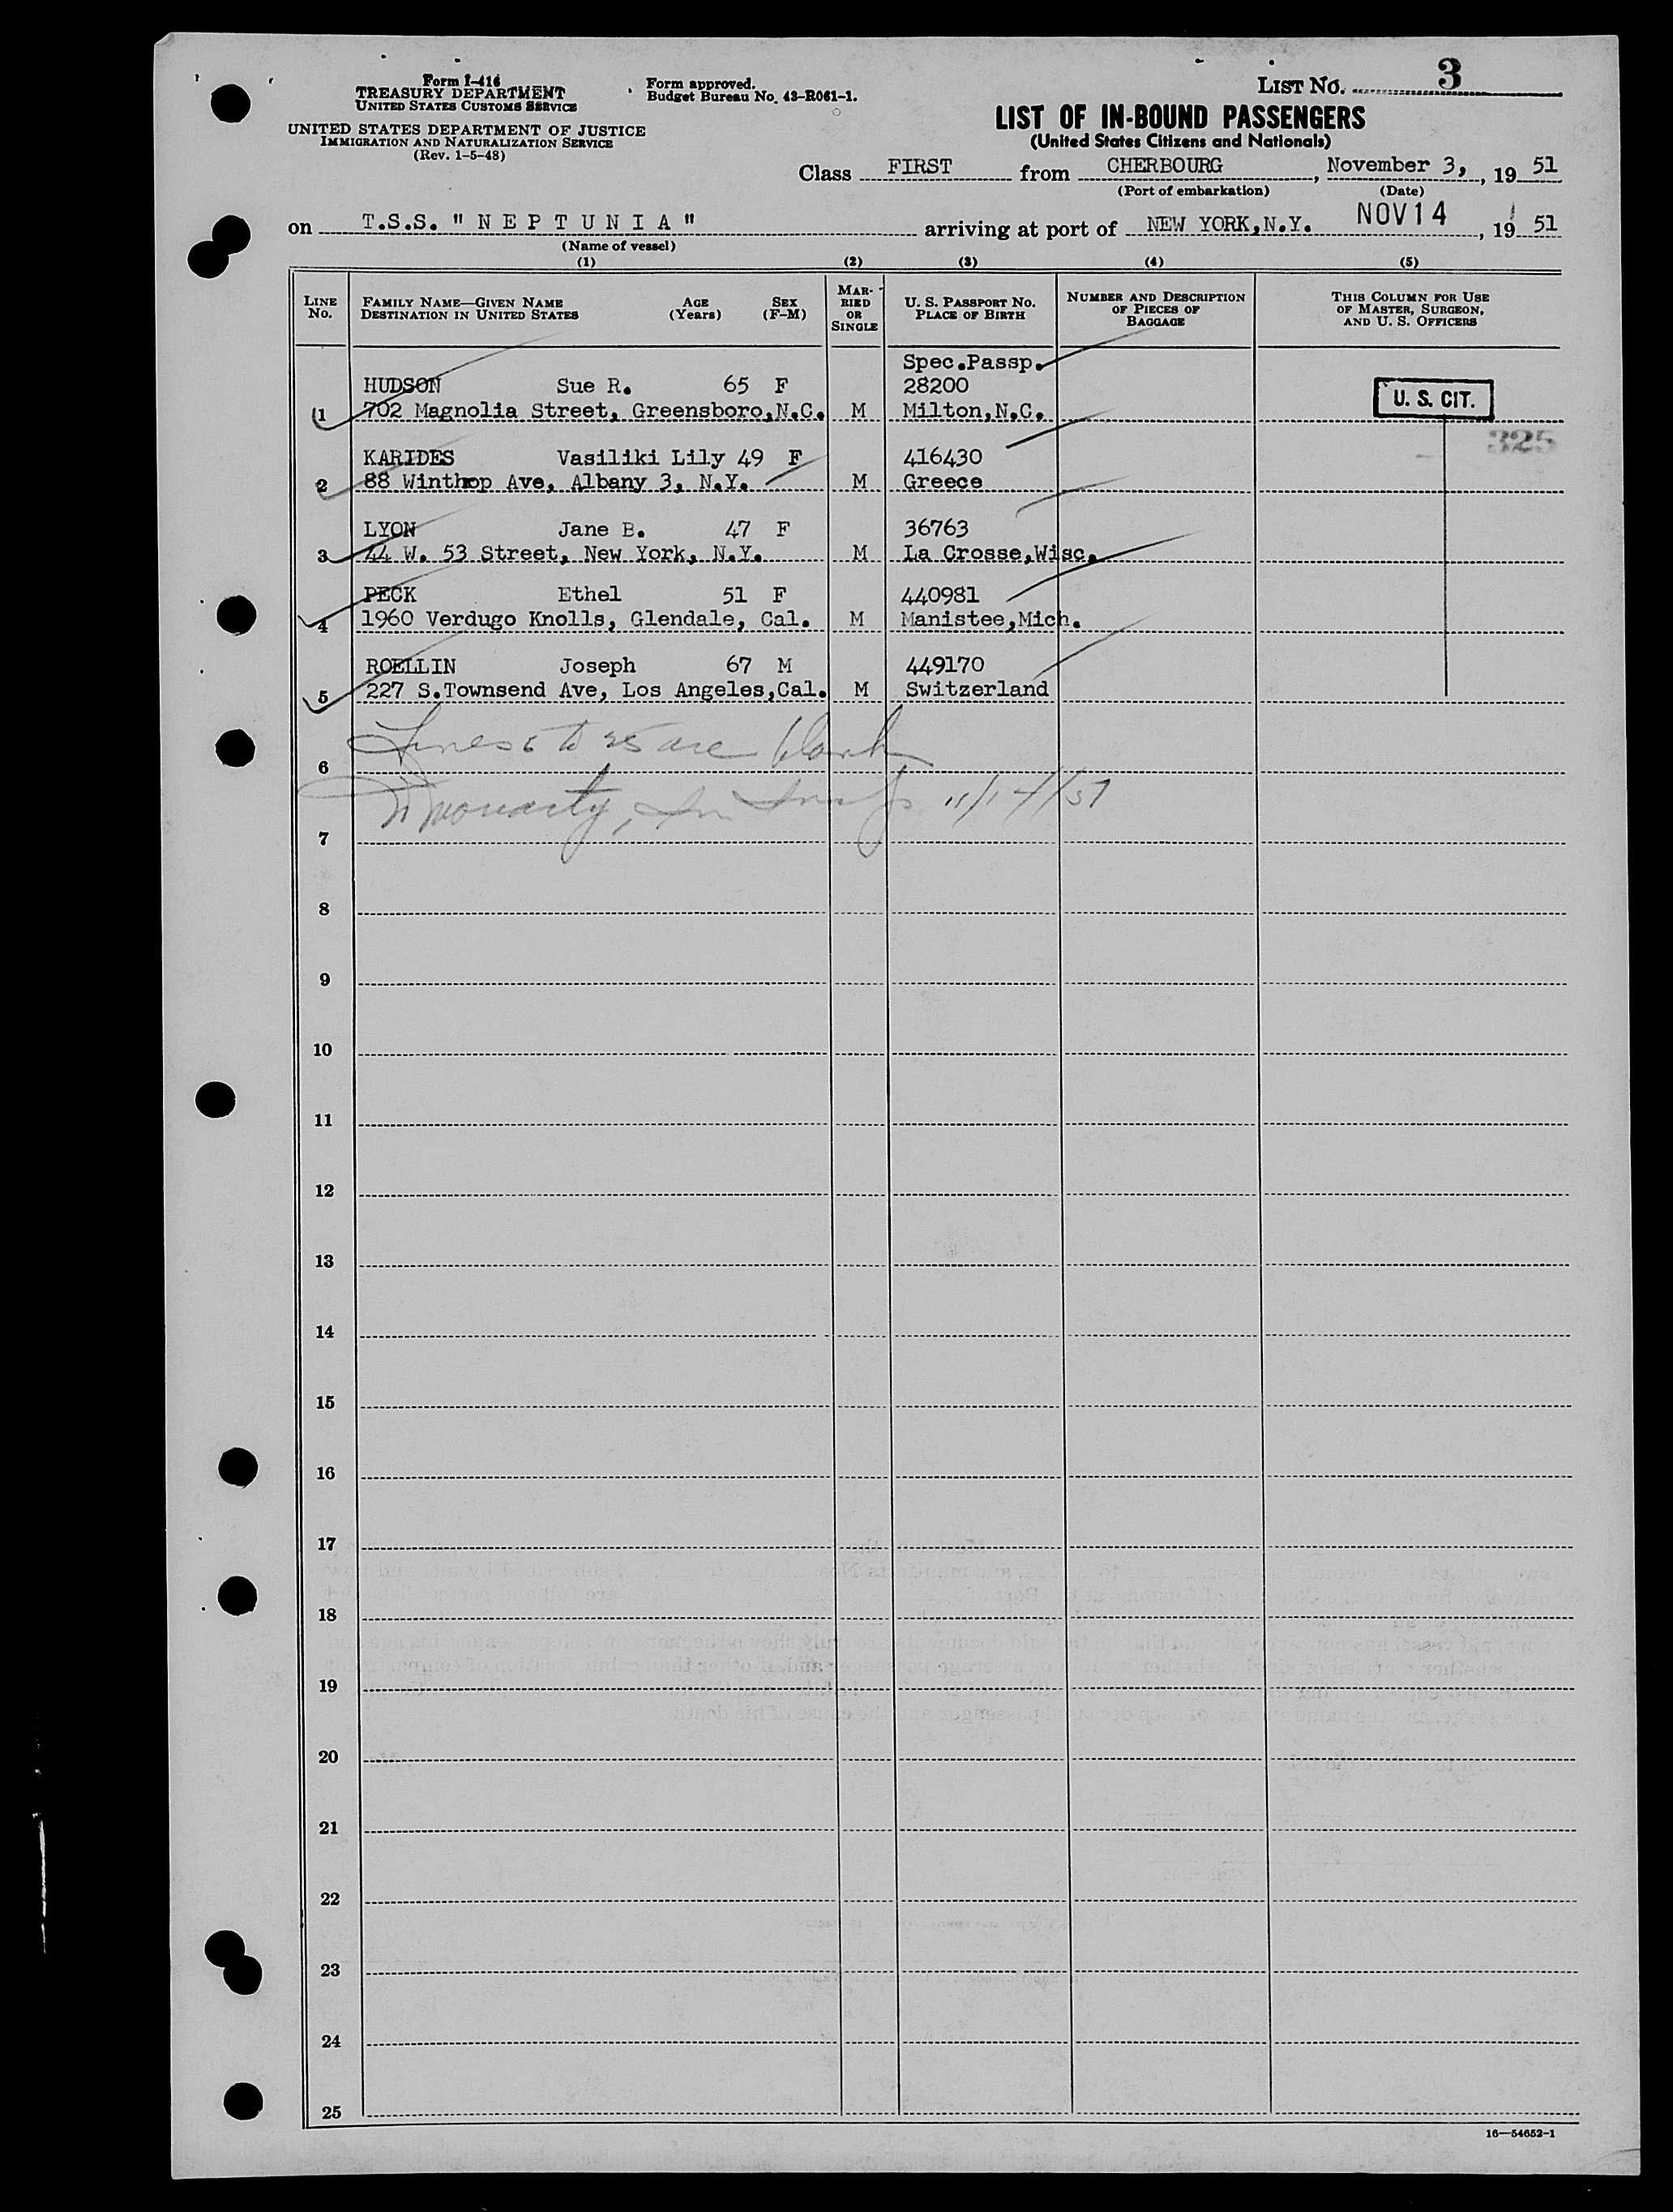 Form I-416
TREASURY DEPARTMENT
UNITED STATES CUSTOMS SERVICE
UNITED STATES DEPARTMENT OF JUSTICE
IMMIGRATION AND NATURALIZATION SERVICE
(Rev. 1-5-48)
Form approved.
Budget Bureau No. 43-R061-1.
LIST NO. 3
LIST OF IN-BOUND PASSENGERS
(United States Citizens and Nationals)
Class FIRST from CHERBOURG, November 3, 19 51
(Port of embarkation) (Date)
on T.S.S. " N E P T U N I A " arriving at port of NEW YORK,N.Y. NOV 14, 19 51
(Name of vessel)
(1) (2) (3) (4) (5)
LINE NO. FAMILY NAME—GIVEN NAME DESTINATION IN UNITED STATES AGE (Years) SEX (F-M) MARRIED OR SINGLE U. S. PASSPORT NO. PLACE OF BIRTH NUMBER AND DESCRIPTION OF PIECES OF BAGGAGE THIS COLUMN FOR USE OF MASTER, SURGEON, AND U. S. OFFICERS
Spec.Passp.
HUDSON Sue R. 65 F 28200
1 702 Magnolia Street, Greensboro,N.C. M Milton,N.C. U. S. CIT.
325
KARIDES Vasiliki Lily 49 F 416430
2 88 Winthop Ave, Albany 3, N.Y. M Greece
LYON Jane B. 47 F 36763
3 44 W. 53 Street, New York, N.Y. M La Crosse,Wisc.
PECK Ethel 51 F 440981
4 1960 Verdugo Knolls, Glendale, Cal. M Manistee,Mich.
ROELLIN Joseph 67 M 449170
5 227 S.Townsend Ave, Los Angeles,Cal. M Switzerland
Lines 6 to 25 are blank
6
11/14/51
7
8
9
10
11
12
13
14
15
16
17
18
19
20
21
22
23
24
25
16—54652-1